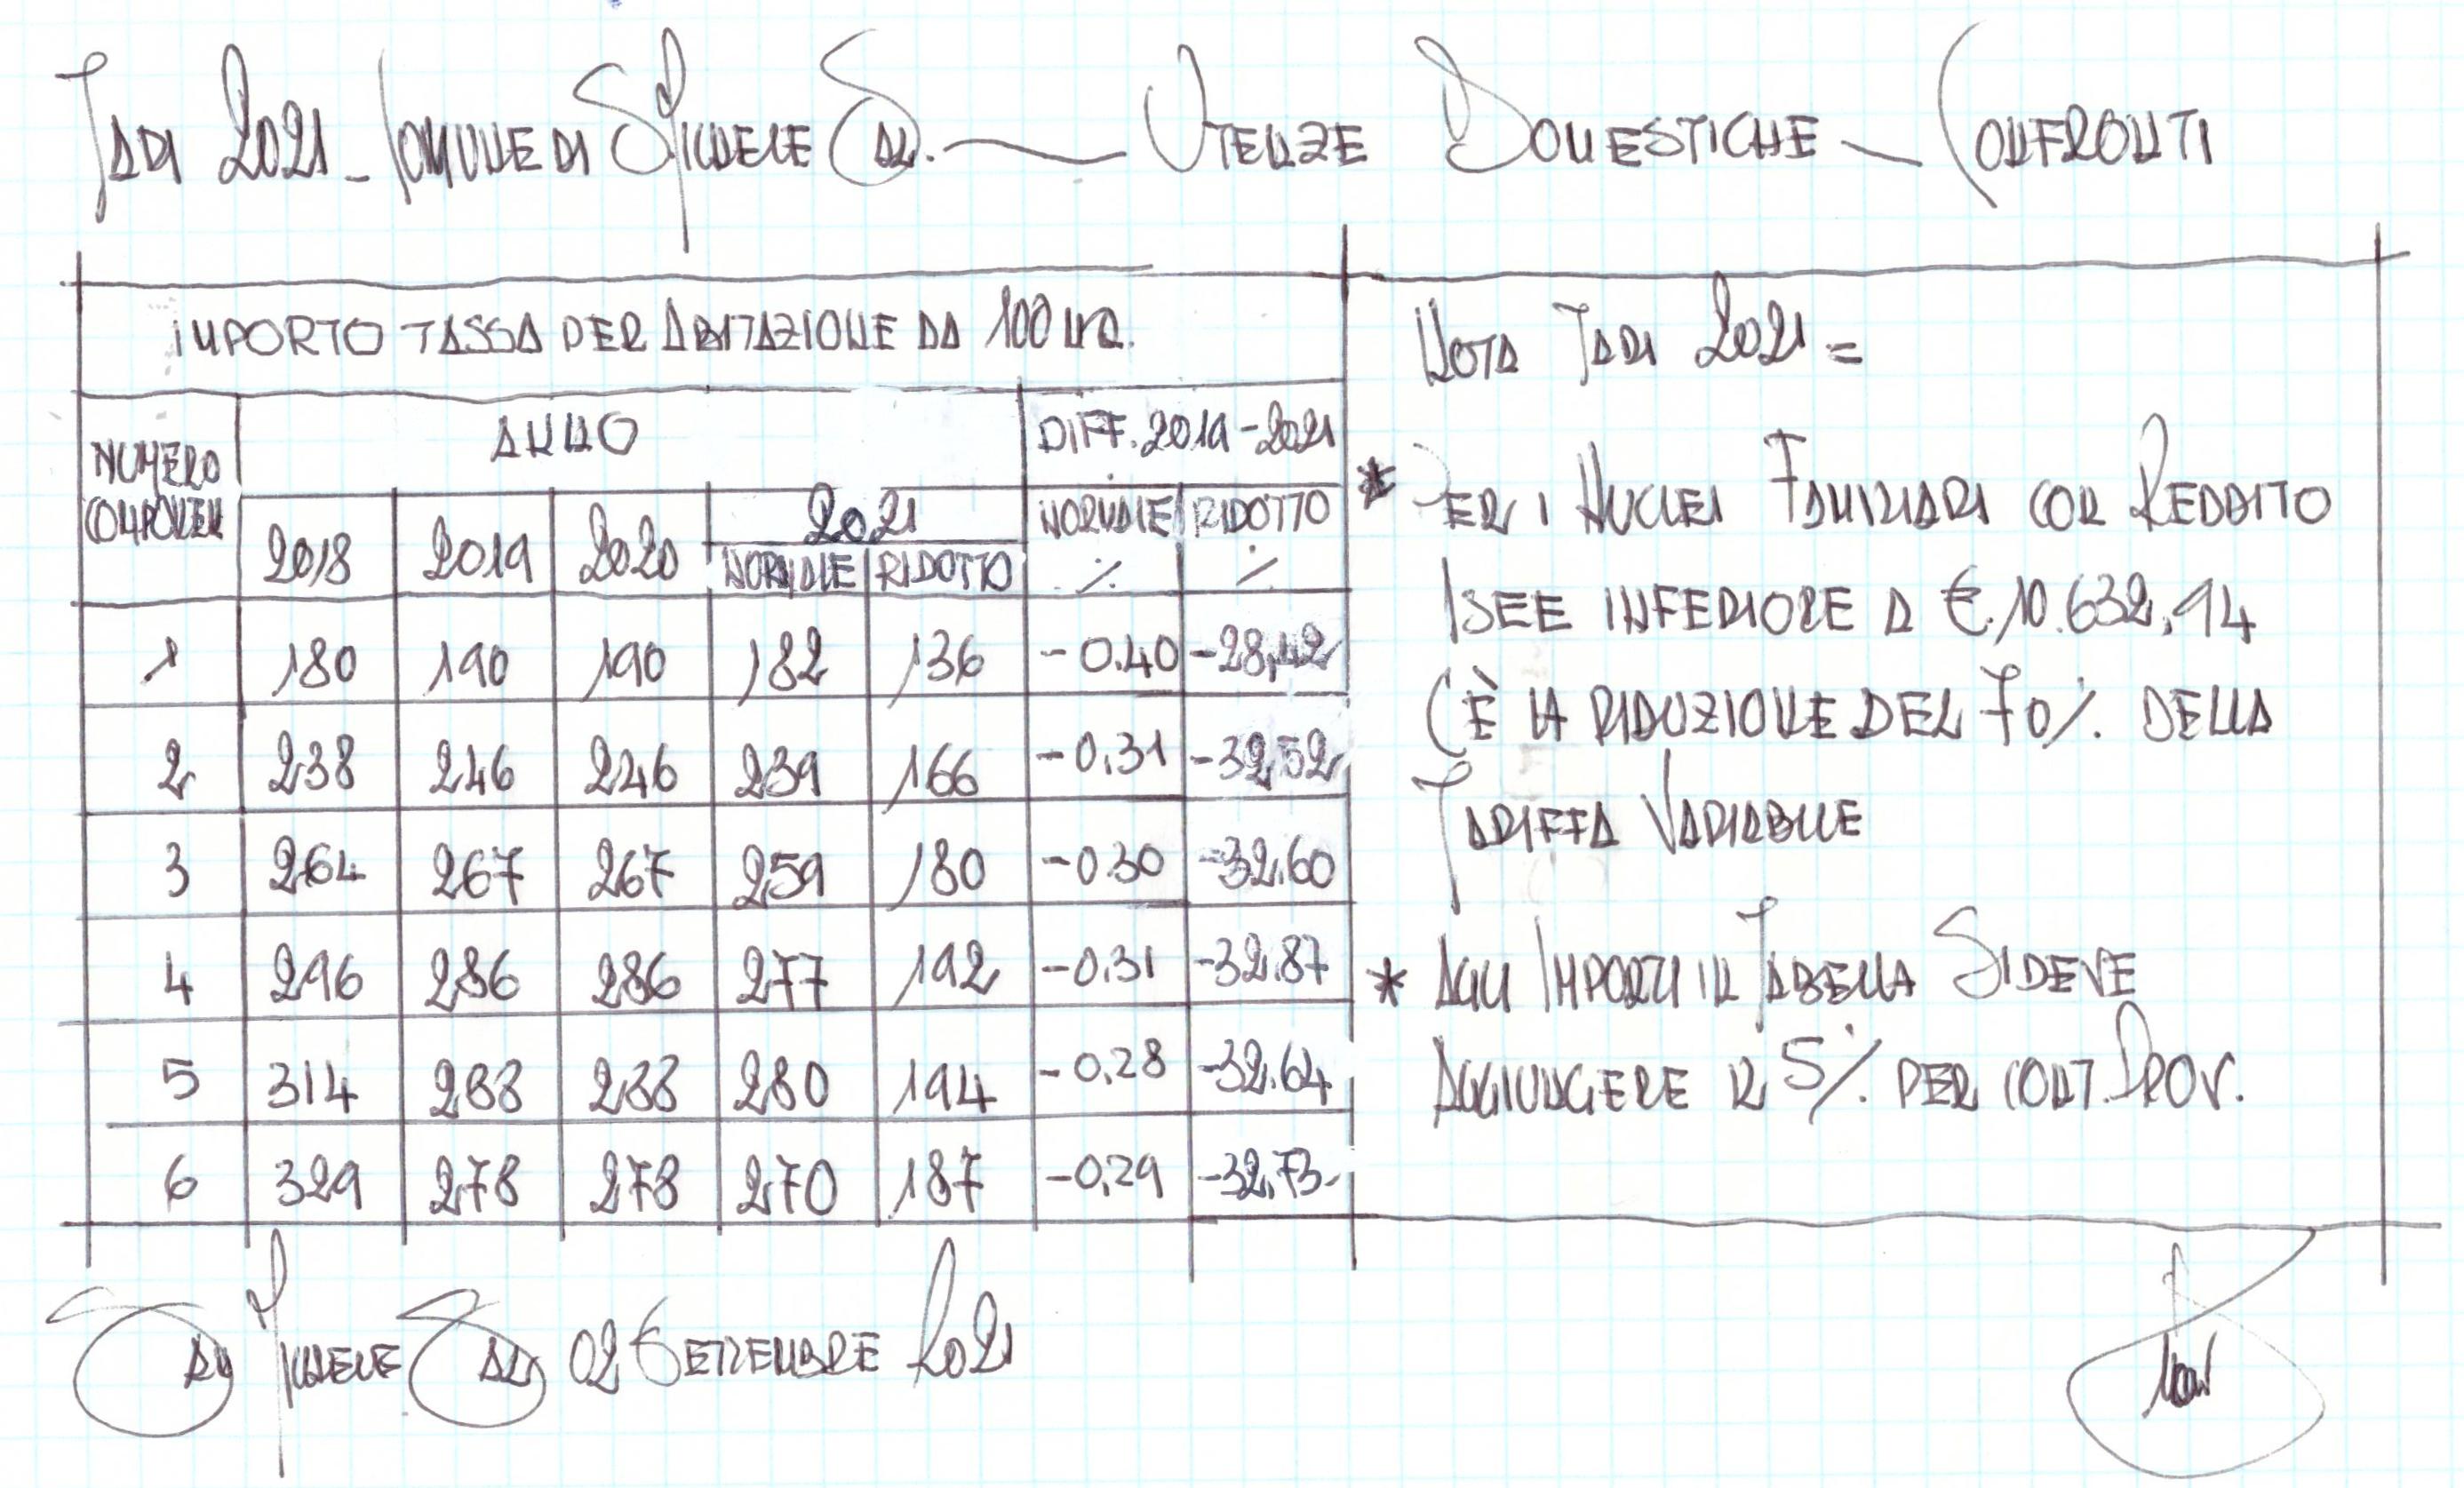 TARI 2021 - COMUNE DI S. MICHELE SAL. — UTENZE DOMESTICHE — CONFRONTI
IMPORTO TASSA PER ABITAZIONE DA 100 MQ.
NUMERO COMPONEN ANNO DIFF. 2019-2021
2018 2019 2020 2021 NORMALE RIDOTTO
NORMALE RIDOTTO % %
1 180 190 190 182 136 -0.40 -28,42
2 238 246 246 239 166 -0,31 -32,52
3 264 267 267 259 180 -0.30 -32.60
4 296 286 286 277 192 -0,31 -32.87
5 314 288 288 280 194 -0,28 -32.64
6 329 278 278 270 187 -0,29 -32,73
NOTA TARI 2021 =
* PER I NUCLEI FAMILIARI CON REDDITO
ISEE INFERIORE A €. 10.632,94
C'È LA RIDUZIONE DEL 70% DELLA
TARIFFA VARIABILE
* AGLI IMPORTI IN TABELLA SI DEVE
AGGIUNGERE IL 5% PER CONT. PROV.
SAN MICHELE SAL. 02 SETTEMBRE 2021